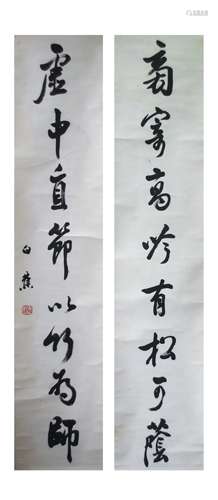 寄高吟有松可蔭
虛中直節以竹為師
白蕉